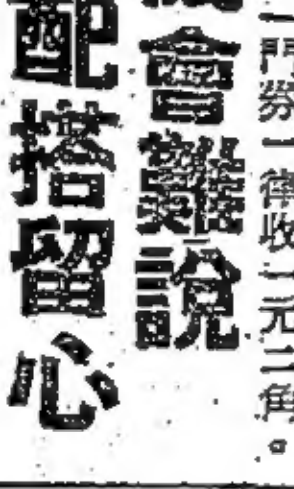 一門券一律收一元二角。
會難說
配搭留心